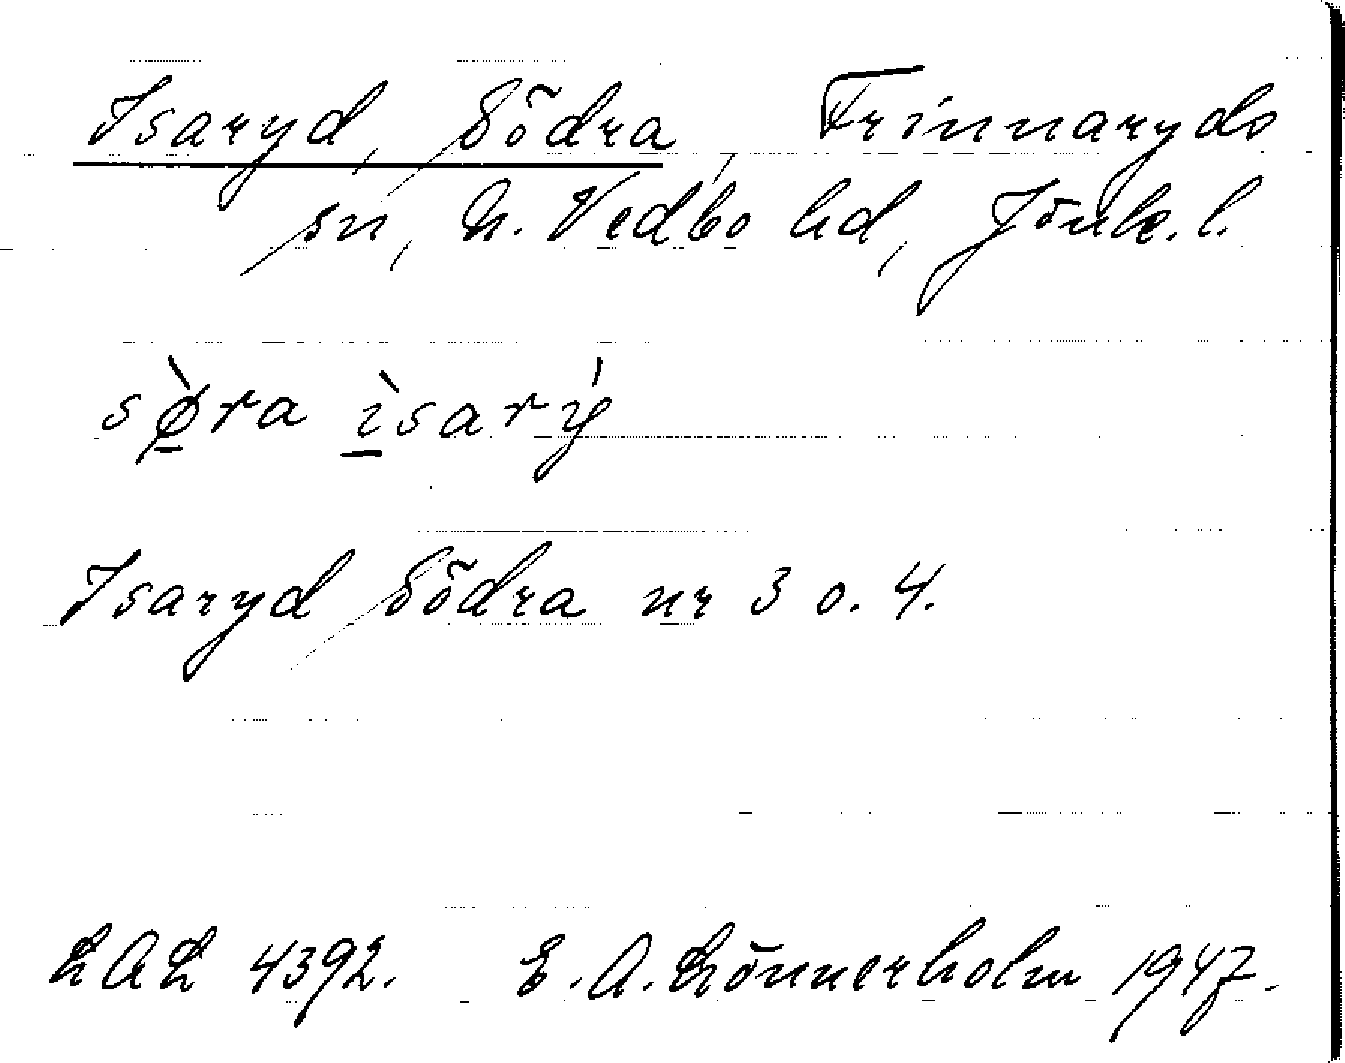 Isaryd, Södra Frinnaryds
sn, N. Vedbo hd, Jönk. l.
sø̀ra ìsarý
Isaryd Södra nr 3 o. 4.
LAL 4392. E. A. Lönnerholm 1947.